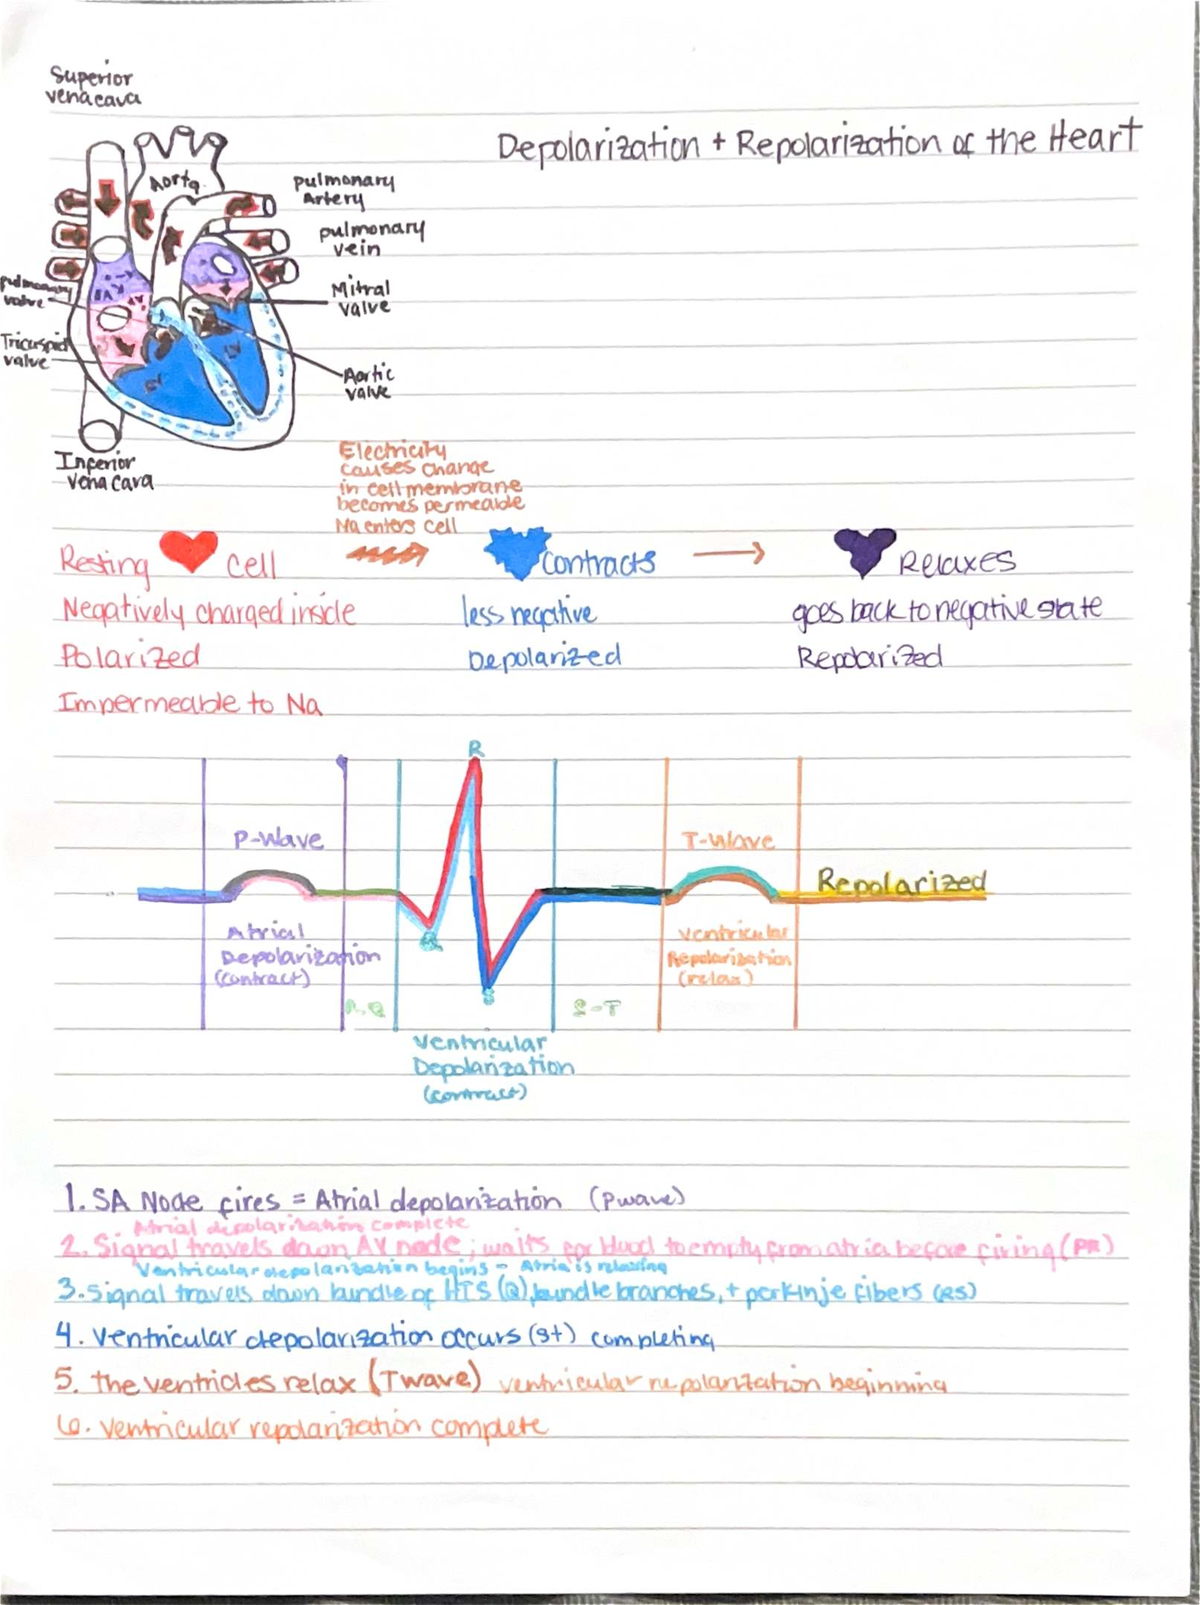 Superior
vena cava
Depolarization + Repolarization of the Heart
Aorta
pulmonary
Artery
pulmonary
vein
pulmonary
valve
Mitral
valve
Tricuspid
valve
Aortic
valve
Inferior
vena cava
Electricity
causes change
in cell membrane
becomes permeable
Na enters cell
Resting cell
contracts
Relaxes
Negatively charged inside
less negative
goes back to negative state
Polarized
Depolarized
Repolarized
Impermeable to Na
R
P-Wave
T-Wave
Repolarized
Q
Atrial
Depolarization
(contract)
Ventricular
Repolarization
(relax)
S
S-T
Ventricular
Depolarization
(contract)
1. SA Node fires = Atrial depolarization (Pwave)
Atrial depolarization complete
2. Signal travels down AV node; waits for blood to empty from atria before firing (PR)
Ventricular depolarization begins - Atria is relaxing
3. Signal travels down bundle of HIS (Q), bundle branches, + perkinje fibers (RS)
4. Ventricular depolarization occurs (st) completing
5. the ventricles relax (Twave) ventricular repolarization beginning
6. ventricular repolarization complete